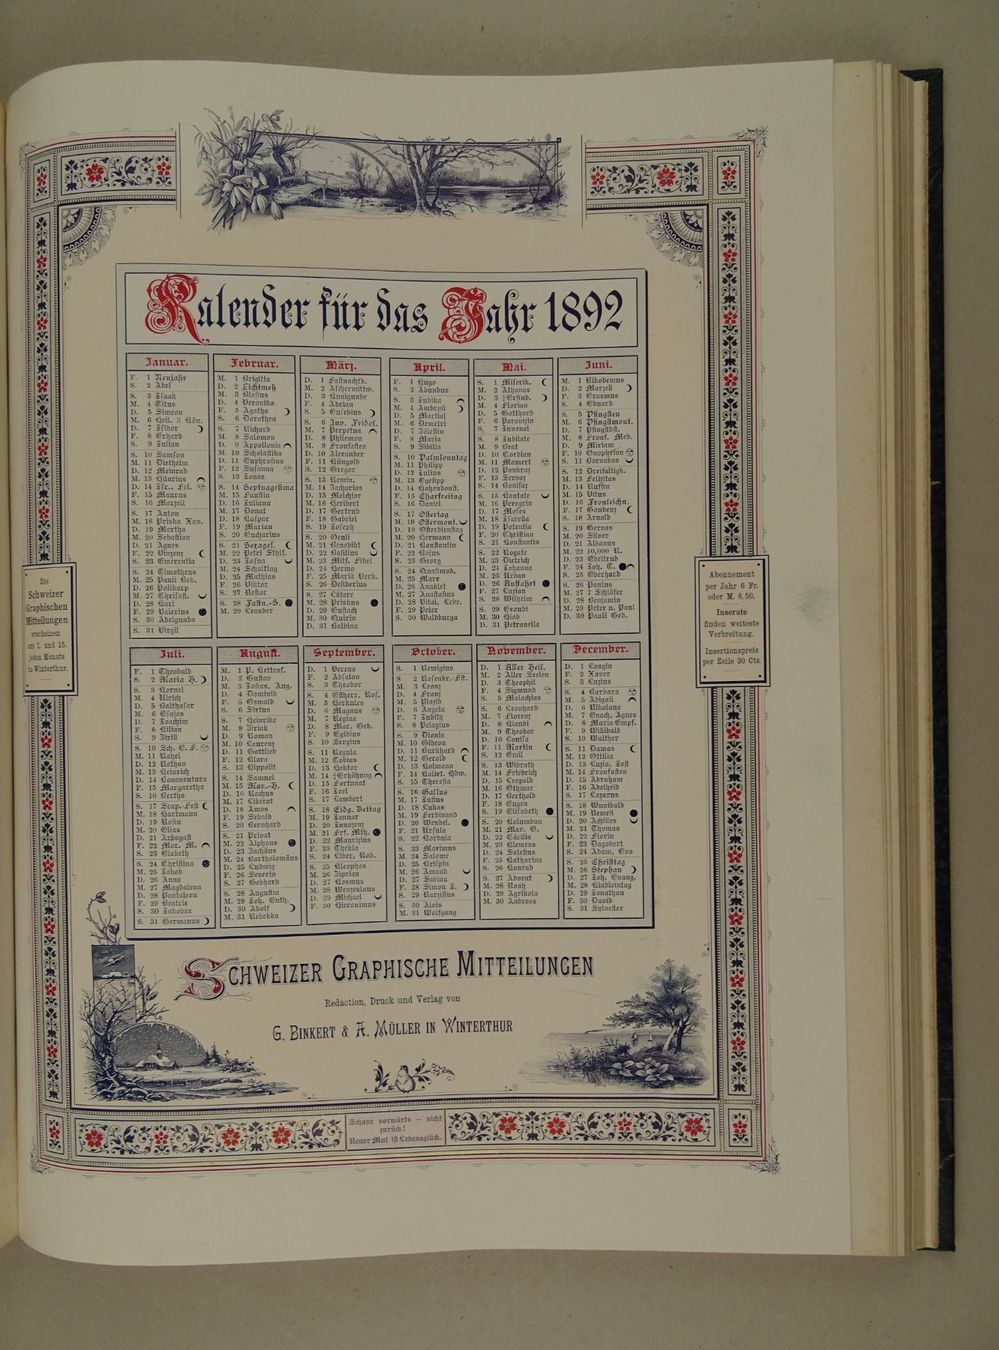 Kalender für das Jahr 1892
Januar.
F. 1 Neujahr
S. 2 Abel
S. 3 Isaak
M. 4 Titus
D. 5 Simeon
M. 6 Heil. 3 Kön.
D. 7 Isidor
F. 8 Erhard
S. 9 Julian
S. 10 Samson
M. 11 Diethelm
D. 12 Meinrad
M. 13 Hilarius
D. 14 Isr., Fel.
F. 15 Maurus
S. 16 Marzell
S. 17 Anton
M. 18 Priska
D. 19 Martha
M. 20 Sebastian
D. 21 Agnes
F. 22 Vinzenz
S. 23 Emerentia
S. 24 Timotheus
M. 25 Pauli Bek.
D. 26 Polikarp
M. 27 Chrysost.
D. 28 Karl
F. 29 Valerius
S. 30 Adelgunda
S. 31 Virgil
Februar.
M. 1 Brigitta
D. 2 Lichtmeß
M. 3 Blasius
D. 4 Veronika
F. 5 Agatha
S. 6 Dorothea
S. 7 Richard
M. 8 Salomon
D. 9 Appollonia
M. 10 Scholastika
D. 11 Euphrosina
F. 12 Susanna
S. 13 Jonas
S. 14 Septuagesima
M. 15 Faustin
D. 16 Juliana
M. 17 Donat
D. 18 Kaspar
F. 19 Marian
S. 20 Eucharius
S. 21 Sexages.
M. 22 Petri Sthlf.
D. 23 Josua
M. 24 Schalttag
D. 25 Mathias
F. 26 Viktor
S. 27 Nestor
S. 28 Fastn.-S.
M. 29 Leander
März.
D. 1 Fastnachtd.
M. 2 Aschermittw.
D. 3 Kunigunde
F. 4 Adrian
S. 5 Eusebius
S. 6 Inv. Fridol.
M. 7 Perpetua
D. 8 Philemon
M. 9 Fronfasten
D. 10 Alexander
F. 11 Küngold
S. 12 Gregor
S. 13 Remin.
M. 14 Zacharias
D. 15 Melchior
M. 16 Heribert
D. 17 Gertrud
F. 18 Gabriel
S. 19 Joseph
S. 20 Oculi
M. 21 Benedikt
D. 22 Basilius
M. 23 Mitf. Fidel
D. 24 Hermo
F. 25 Mariä Verk.
S. 26 Desiderius
S. 27 Lätare
M. 28 Priskus
D. 29 Eustach
M. 30 Quirin
D. 31 Balbina
April.
F. 1 Hugo
S. 2 Abundus
S. 3 Judika
M. 4 Ambros
D. 5 Martial
M. 6 Demetri
D. 7 Zölestin
F. 8 Maria
S. 9 Sibilla
S. 10 Palmsonntag
M. 11 Philipp
D. 12 Julius
M. 13 Egesipp
D. 14 Hohendonst.
F. 15 Charfreitag
S. 16 Daniel
S. 17 Ostertag
M. 18 Ostermont.
D. 19 Osterdienstag
M. 20 Hermann
D. 21 Konstantin
F. 22 Kajus
S. 23 Georg
S. 24 Quasimod.
M. 25 Marx
D. 26 Anaklet
M. 27 Anastasius
D. 28 Vital, Lehr.
F. 29 Peter
S. 30 Waldburga
Mai.
S. 1 Miserik.
M. 2 Athanas
D. 3 † Erfind.
M. 4 Florian
D. 5 Gotthard
F. 6
S. 7 Juvenal
S. 8 Jubilate
M. 9 Beat
D. 10 Gordian
M. 11 Mamert
D. 12 Pankraz
F. 13 Servaz
S. 14 Bonifaz
S. 15 Kantate
M. 16 Peregrin
D. 17 Moses
M. 18 Isabella
D. 19 Potentia
F. 20 Christian
S. 21 Konstantin
S. 22 Rogate
M. 23 Dietrich
D. 24 Johanna
M. 25 Urban
D. 26 Auffahrt
F. 27 Luzian
S. 28 Wilhelm
S. 29 Exaudi
M. 30 Hiob
D. 31 Petronella
Juni.
M. 1 Nikodemus
D. 2 Marzell
F. 3 Erasmus
S. 4 Eduard
S. 5 Pfingsten
M. 6 Pfingstmont.
D. 7 Pfingstdst.
M. 8 Fronf. Med.
D. 9 Miriam
F. 10 Onophrion
S. 11 Barnabas
S. 12 Dreifaltigk.
M. 13 Felizitas
D. 14 Ruffin
M. 15 Vitus
D. 16 Fronleichn.
F. 17 Gaudenz
S. 18 Arnold
S. 19 Gervas
M. 20 Silver
D. 21 Albanus
M. 22 10,000 R.
D. 23 Edeltrud
F. 24 Joh. T.
S. 25 Eberhard
S. 26 Paulus
M. 27 7 Schläfer
D. 28 Benjamin
M. 29 Peter u. Paul
D. 30 Pauli Ged.
Juli.
F. 1 Theobald
S. 2 Maria H.
S. 3 Kornel
M. 4 Ulrich
D. 5 Balthasar
M. 6 Esajas
D. 7 Joachim
F. 8 Kilian
S. 9 Zirill
S. 10 Sch. E. F.
M. 11 Rahel
D. 12 Nathan
M. 13 Heinrich
D. 14 Bonaventura
F. 15 Margaretha
S. 16 Bertha
S. 17 Scap.-Fest
M. 18 Hartmann
D. 19 Rosin
M. 20 Elias
D. 21 Arbogast
F. 22 Mar. M.
S. 23 Elsbeth
S. 24 Christina
M. 25 Jakob
D. 26 Anna
M. 27 Magdalena
D. 28 Pantaleon
F. 29 Beatrix
S. 30 Jakobea
S. 31 Germanus
August.
M. 1 P. Kettenf.
D. 2 Gustav
M. 3 Josias, Aug.
D. 4 Dominik
F. 5 Oswald
S. 6 Sixtus
S. 7 Heinrike
M. 8 Ziriak
D. 9 Roman
M. 10 Laurenz
D. 11 Gottlieb
F. 12 Klara
S. 13 Hippolit
S. 14 Samuel
M. 15 Mar.-H.
D. 16 Rochus
M. 17 Liberat
D. 18 Amos
F. 19 Sebald
S. 20 Bernhard
S. 21 Privat
M. 22 Alphons
D. 23 Zachäus
M. 24 Bartholomäus
D. 25 Ludwig
F. 26 Severin
S. 27 Gebhard
S. 28 Augustin
M. 29 Joh. Enth.
D. 30 Adolf
M. 31 Rebekka
September.
D. 1 Verena
F. 2 Absalon
S. 3 Theodor
S. 4 Esther, Ros.
M. 5 Herkules
D. 6 Magnus
M. 7 Regina
D. 8 Mar. Geb.
F. 9 Egidius
S. 10 Sergius
S. 11 Regula
M. 12 Tobias
D. 13 Hektor
M. 14 † Erhöhung
D. 15 Fortunat
F. 16 Joel
S. 17 Lambert
S. 18 Eidg. Bettag
M. 19 Januar
D. 20 Innozenz
M. 21 Frf. Mth.
D. 22 Mauritius
F. 23 Thekla
S. 24 Liber, Rob.
S. 25 Kleophas
M. 26 Ziprian
D. 27 Kosmus
M. 28 Wenzeslaus
D. 29 Michael
F. 30 Hieronimus
October.
S. 1 Remigius
S. 2 Rosenkr.-Fst.
M. 3 Leonz
D. 4 Franz
M. 5 Plazid
D. 6 Angela
F. 7 Judith
S. 8 Pelagius
S. 9 Dionis
M. 10 Gideon
D. 11 Burkhard
M. 12 Gerold
D. 13 Kolmann
F. 14 Kalixt. Hdw.
S. 15 Theresia
S. 16 Gallus
M. 17 Justus
D. 18 Lukas
M. 19 Ferdinand
D. 20 Wendel.
F. 21 Ursula
S. 22 Kordula
S. 23 Maximus
M. 24 Salome
D. 25 Krispin
M. 26 Amand
D. 27 Sabina
F. 28 Simon J.
S. 29 Narzissus
S. 30 Alois
M. 31 Wolfgang
November.
D. 1 Aller Heil.
M. 2 Aller Seelen
D. 3 Theophil
F. 4 Sigmund
S. 5 Malachias
S. 6 Leonhard
M. 7 Florenz
D. 8 Klaudi
M. 9 Theodor
D. 10 Louisa
F. 11 Martin
S. 12 Emil
S. 13 Wibrath
M. 14 Friedrich
D. 15 Leopold
M. 16 Othmar
D. 17 Berthold
F. 18 Eugen
S. 19 Elisabeth
S. 20 Kolumban
M. 21 Mar. O.
D. 22 Cäcilia
M. 23 Klemens
D. 24 Salesius
F. 25 Katharina
S. 26 Konrad
S. 27 Advent
M. 28 Noah
D. 29 Agrikola
M. 30 Andreas
December.
D. 1 Longin
F. 2 Xaver
S. 3 Luzius
S. 4 Barbara
M. 5 Abigail
D. 6 Nikolaus
M. 7 Enoch, Agnes
D. 8 Maria Empf.
F. 9 Willibald
S. 10 Walther
S. 11 Damas
M. 12 Ottilia
D. 13 Luzia, Jost
M. 14 Fronfasten
D. 15 Abraham
F. 16 Adelheid
S. 17 Lazarus
S. 18 Wunibald
M. 19 Nemest
D. 20 Achilles
M. 21 Thomas
D. 22 Florin
F. 23 Dagobert
S. 24 Adam, Eva
S. 25 Christtag
M. 26 Stephan
D. 27 Joh. Evang.
M. 28 Kindleintag
D. 29 Jonathan
F. 30 David
S. 31 Sylvester
Die
Schweizer
Graphischen
Mitteilungen
erscheinen
am 1. und 15.
jeden Monats
in Winterthur.
Abonnement
per Jahr 6 Fr.
oder M. 6.50.
Inserate
finden weiteste
Verbreitung.
Insertionspreis
per Zeile 30 Cts.
SCHWEIZER GRAPHISCHE MITTEILUNGEN
Redaction, Druck und Verlag von
G. BINKERT & A. MÜLLER IN WINTERTHUR
Schaue vorwärts – nicht
zurück!
Neuer Mut ist Lebensglück.